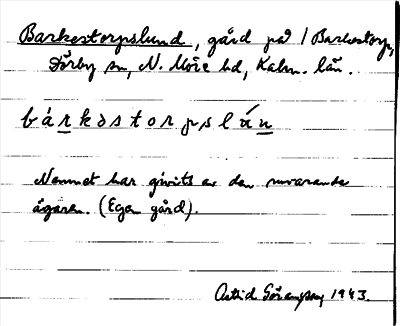 Barkestorpslund, gård på 1 Barkestorp,
Dörby sn, N. Möre hd, Kalm. län.
bárkəstorpslún
Namnet har givits av den nuvarande
ägaren. (Egen gård).
Astrid Göransson 1943.